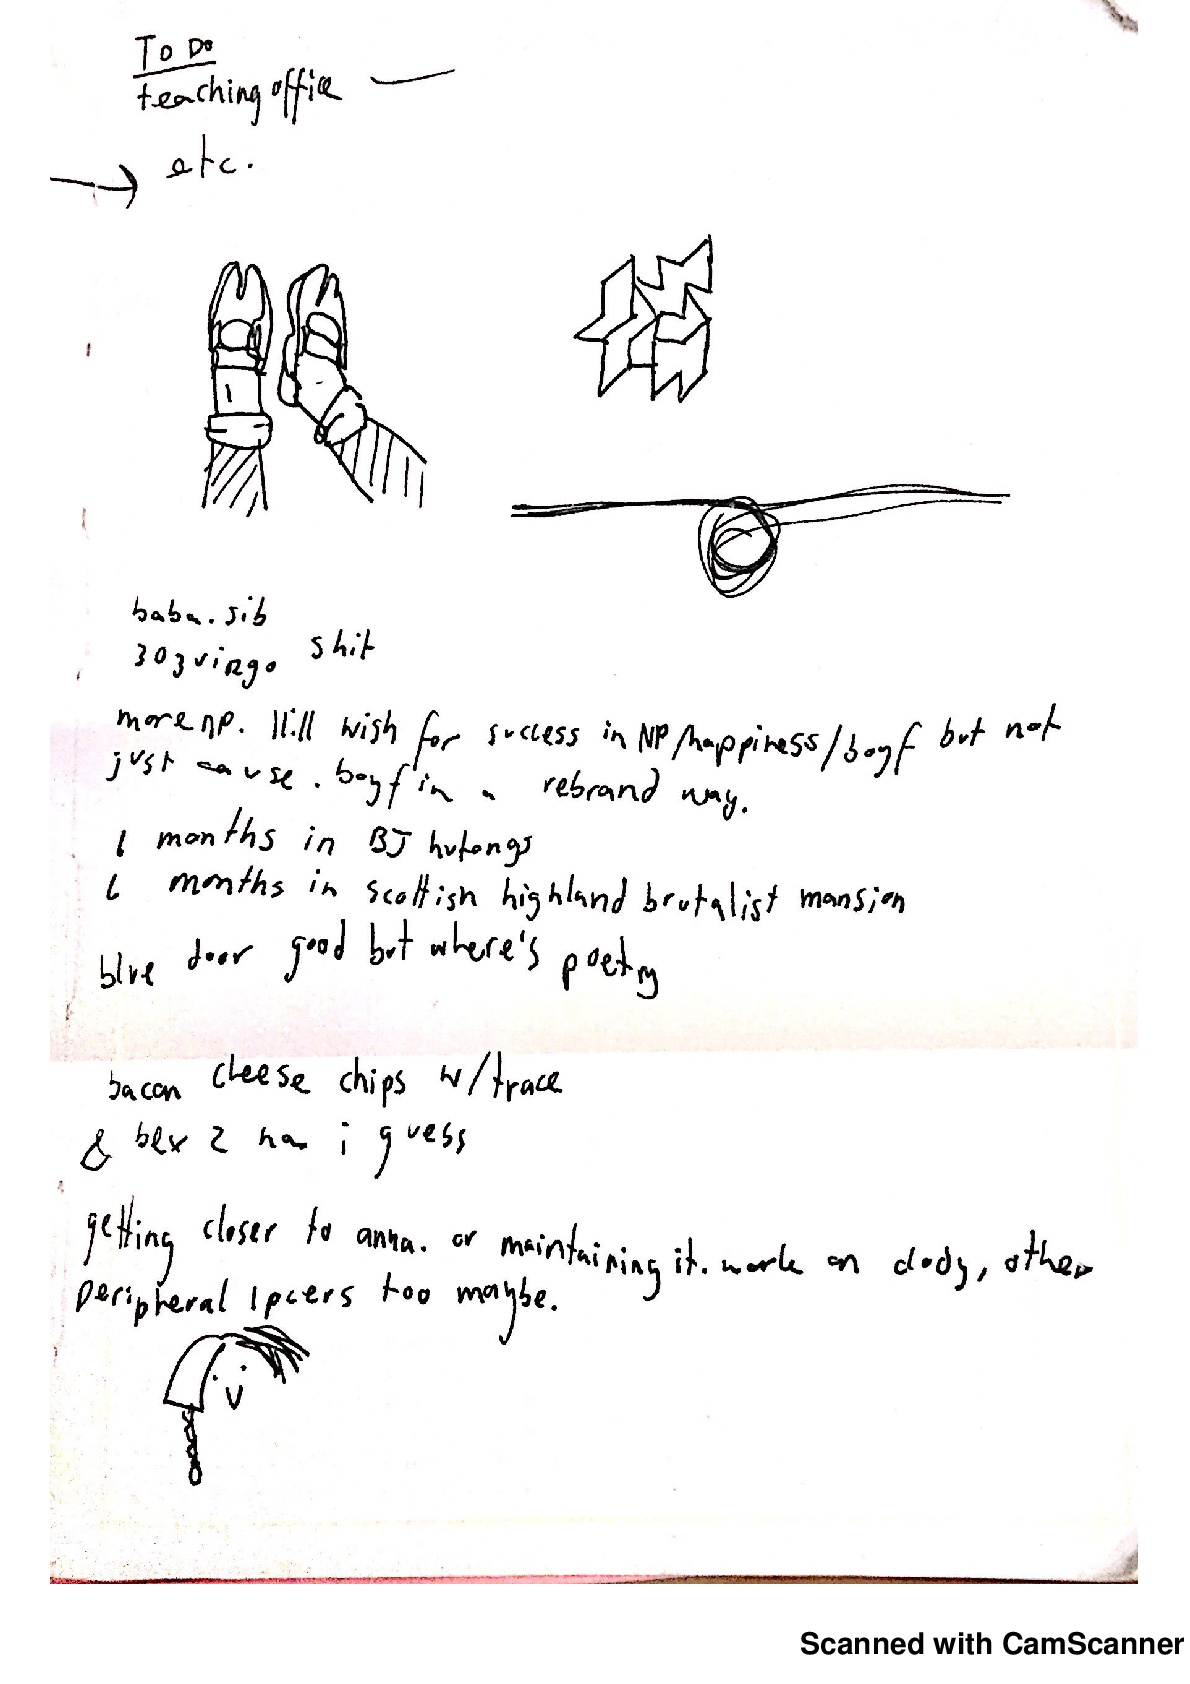 To Do
teaching office
etc.
baba.sib
303virgo shit
more np. still wish for success in NP/happiness/boyf but not
just cause. boyf in a rebrand way.
6 months in BJ hutongs
6 months in scottish highland brutalist mansion
blue door good but where's poetry
bacon cheese chips w/trace
& bex 2 ha i guess
getting closer to anna. or maintaining it. work on dody, other
peripheral 1pcers too maybe.
Scanned with CamScanner